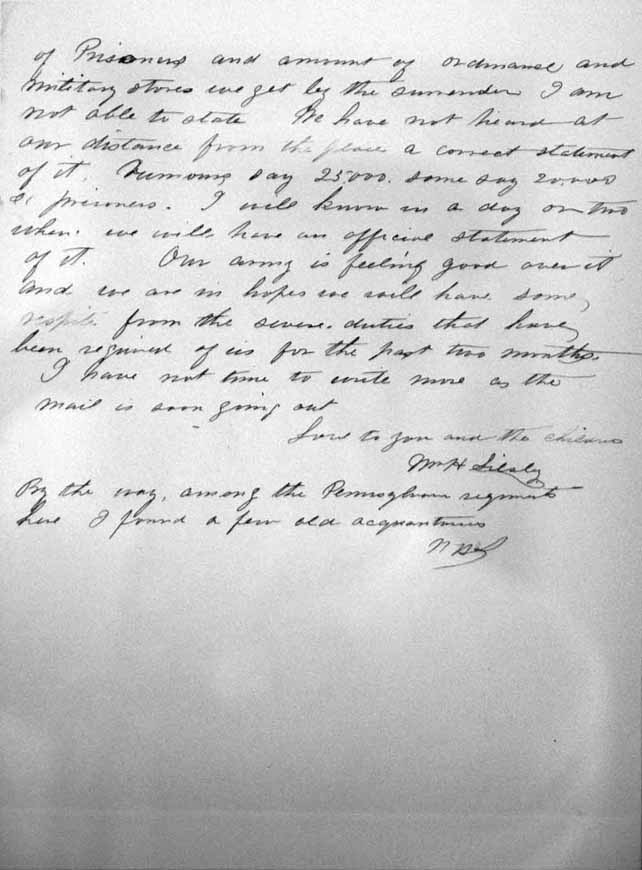 of Prisoners and amount of ordinance and
military stores we get by the surrender I am
not able to state We have not heard at
our distance from the place a correct statement
of it. Rumours say 25000. some say 20,000
prisoners. I will know in a day or two
when we will have an official statement
of it. Our army is feeling good over it
and we are in hopes we will have some
respite from the severe duties that have
been required of us for the past two months
I have not time to write more as the
mail is soon going out
Love to you and the children
Wm H Silsby
By the way, among the Pennsylvania regiments
here I found a few old acquantances